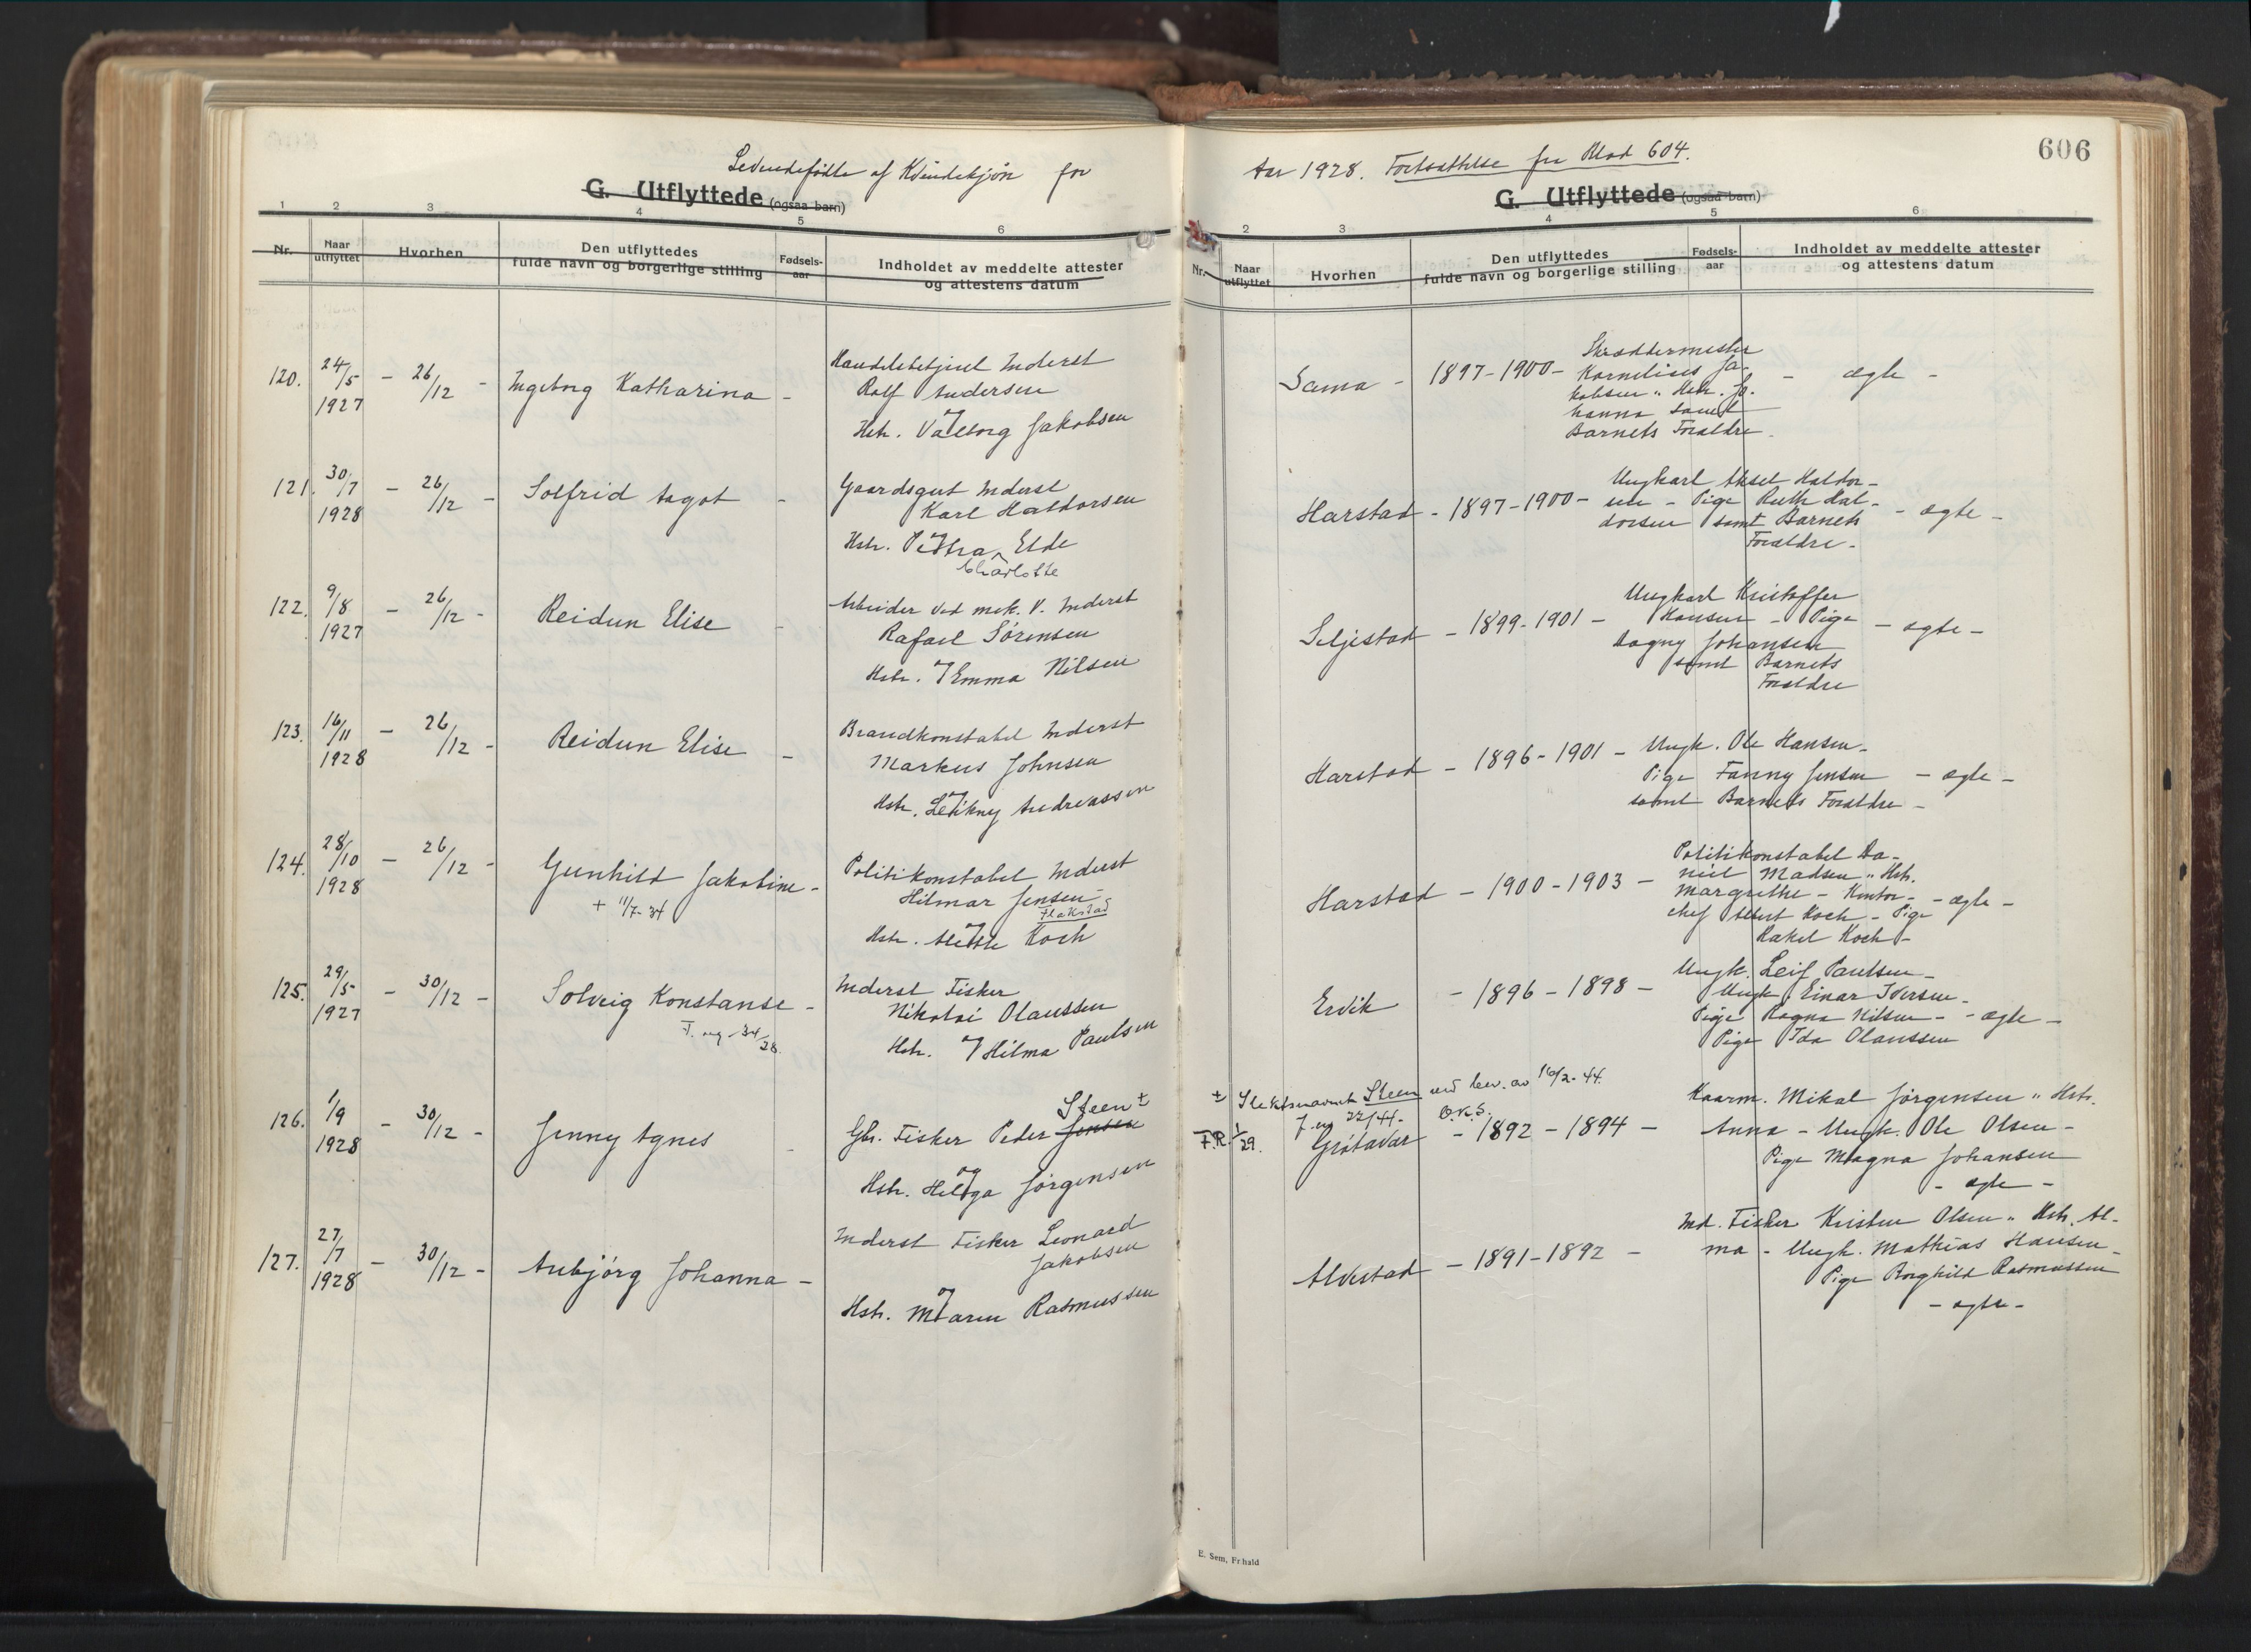 606
Levendefødte af Kvindekjøn for
Aar 1928. Fortsættelse fra Blad 604.
G. Utflyttede (ogsaa barn)
1 2 3 4 5 6
Nr. Naar utflyttet Hvorhen Den utflyttedes fulde navn og borgerlige stilling Fødsels-aar Indholdet av meddelte attester og attestens datum
G. Utflyttede (ogsaa barn)
2 3 4 5 6
Nr. Naar utflyttet Hvorhen Den utflyttedes fulde navn og borgerlige stilling Fødsels-aar Indholdet av meddelte attester og attestens datum
120. 24/5 1927 - 26/12 - Ingeborg Katharina -
Handelsbetjent Inderst
Rolf Andersen
og
Hstr. Valborg Jakobsen
Sama - 1897-1900 -
Skræddermester
Kornelius Ja-
kobsen " Hstr. Jo-
hanna samt
Barnets Forældre -
- ægte -
121. 30/7 1928 - 26/12 - Solfrid Aagot -
Gaardsgut Inderst
Karl Haldorsen
og
Hstr. Petra Elde
Charlotte
Harstad - 1897-1900 -
Ungkarl Aksel Haldor-
sen - Pige Ruth Hal-
dorsen samt Barnets
Forældre -
- ægte -
122. 9/8 1927 - 26/12 - Reidun Elise -
Arbeider ved mek. V. Inderst
Rafael Sørensen
og
Hstr. Emma Nilsen
Seljestad - 1899-1901 -
Ungkarl Kristoffer
Hansen - Pige
Dagny Johansen
samt Barnets
Forældre
- ægte -
123. 16/11 1928 - 26/12 - Reidun Elise -
Brandkonstabel Inderst
Markus Johnsen
og
Hstr. Leikny Andreassen
Harstad - 1896-1901 -
Ungk. Ole Hansen -
Pige Fanny Jensen
samt Barnets Forældre -
- ægte -
124. 28/10 1928 - 26/12 - Gunhild Jakobine -
+ 11/7-34
Politikonstabel Inderst
Hilmar Jensen
Flakstad
og
Hstr. Koch
Harstad - 1900-1903 -
Politikonstabel Da-
niel Madsen " Hstr.
Margrethe - Kontor-
chef Albert Koch - Pige
Rakel Koch -
- ægte -
125. 29/5 1927 - 30/12 - Solveig Konstanse -
Inderst Fisker
Nikolai Olaussen
og
Hstr. Hilma Paulsen
Ervik - 1896-1898 -
Ungk. Leif Paulsen -
Ungk. Einar Iversen -
Pige Ragna Nilsen -
Pige Ida Olaussen
- ægte -
126. 1/9 1928 - 30/12 - Jenny Agnes -
Steen ±
Gbr. Fisker Peder Jensen
og
Hstr. Helga Jørgensen
± Slektsnavnet Steen ved bev. av 16/2-44.
J. no 22/44. O.K.S.
F.R. 1/29.
Grøtavær - 1892-1894 -
Kaarm. Mikal Jørgensen " Hstr.
Anna - Ungk. Ole Olsen -
Pige Magna Johansen
- ægte -
127. 27/7 1928 - 30/12 - Aubjørg Johanna -
Inderst Fisker Leonard
Jakobsen
og
Hstr. Maren Rasmussen
Alvestad - 1891-1892 -
Ind. Fisker Kristen Olsen " Hstr. Al-
ma - Ungk. Mathias Hansen -
Pige Borghild Rasmussen
- ægte -
E. Sem, Fr.hald